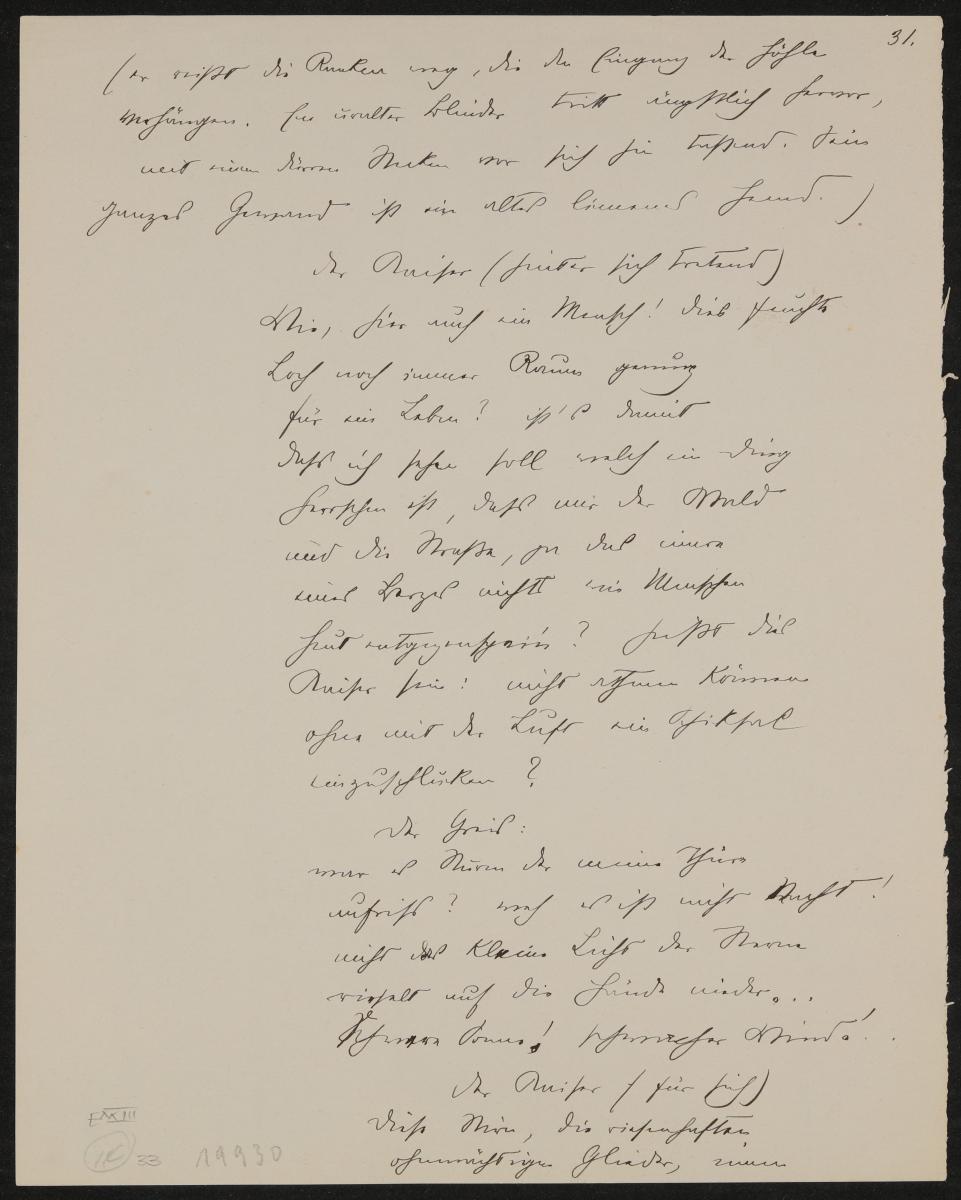 31.
(er reißt die Ranken weg, die den Eingang der Höhle
verhängen. Ein uralter Blinder tritt ängstlich hervor,
mit einem dürren Stecken vor sich hin tastend. Sein
ganzes Gewand ist ein altes linnenes Hemd.)
Der Kaiser (hinter sich tretend)
Wie, hier auch ein Mensch! dies feuchte
Loch noch immer Raum genung
für ein Leben? ist's damit
dass ich sehen soll welch ein Ding
herrschen ist, dass mir der Wald
und die Strasse, ja das innre
eines Berges nichts wie Menschen
heut entgegenspein? heißt dies
Kaiser sein: nicht athmen können
ohne mit der Luft ein Schiksal
einzuschluken?
Der Greis:
war es Sturm der meine Thüre
aufriss? weh es ist nicht Nacht!
nicht das kleine Licht der Sterne
rieselt auf die Hände nieder...
Schwere Sonne! schwacher Wind!..
Der Kaiser (für sich)
Diese Stirn, die riesenhaften
ohnmächtigen Glieder, innen
E IV XIII
33
19930